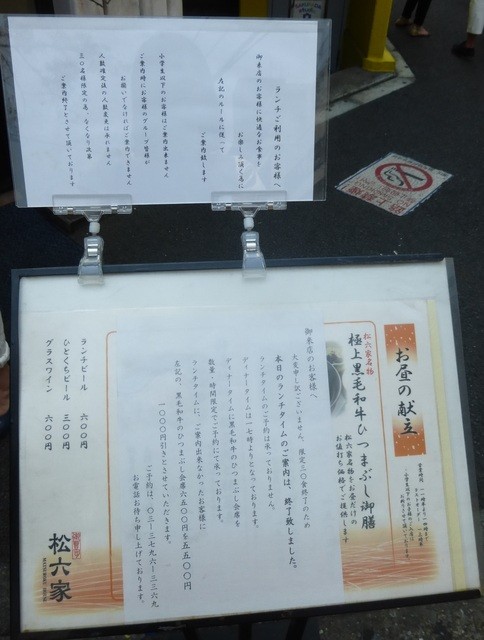 ランチご利用のお客様へ
御来店のお客様に快適なお食事を
お楽しみ頂く為に
左記のルールに従って
ご案内致します
小学生以下のお客様はご案内出来ません
ご案内時にお客様のグループ皆様が
お揃いでなければご案内できません
人数確定後の人数変更は承れません
三〇名様限定の為、なくなり次第
ご案内終了とさせて頂いております
お昼の献立
松六家名物
極上黒毛和牛ひつまぶし御膳
松六家名物をお昼だけの
お値打ち価格でご提供します
御来店のお客様へ
大変申し訳ございません、限定30食終了のため
本日のランチタイムのご案内は、終了致しました。
ランチタイムのご予約は承っておりません。
ディナータイムは一七時よりとなっております。
ディナータイムに黒毛和牛のひつまぶし会席を
数量・時間限定でご予約にて承っております。
ランチタイムに、ご案内出来なかったお客様に
左記の、黒毛和牛のひつまぶし会席六五〇〇円を五五〇〇円
一〇〇〇円引きとさせていただきます。
ご予約は、〇三ー三七九六ー三三六九
お電話お待ち申し上げております。
ランチビール 六〇〇円
ひとくちビール 三〇〇円
グラスワイン 六〇〇円
松六家